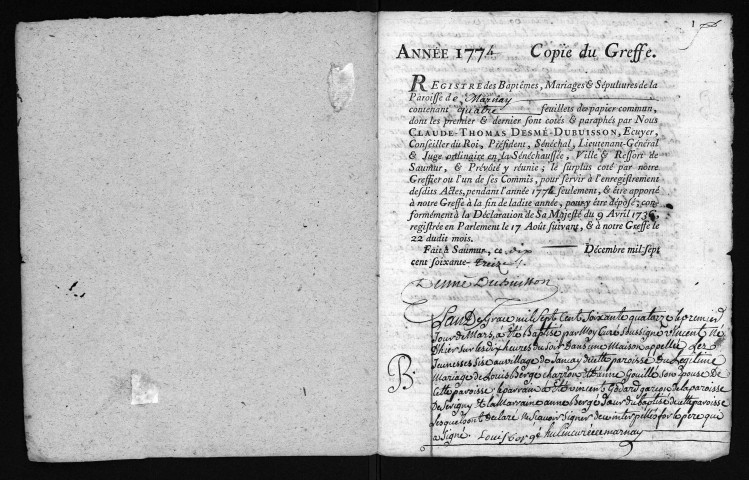 1
ANNÉE 1774 Copie du Greffe.
REGISTRE des Baptêmes, Mariages & Sépultures de la
Paroisse de Marnay
contenant quatre feuillets de papier commun,
dont les premier & dernier sont cotés & paraphés par Nous
CLAUDE-THOMAS DESMÉ-DUBUISSON, Ecuyer,
Conseiller du Roi, Président, Sénéchal, Lieutenant-Général
& Juge ordinaire en la Sénéchaussée, Ville & Ressort de
Saumur, & Prévôté y réunie; le surplus coté par notre
Greffier ou l'un de ses Commis, pour servir à l'enregistrement
desdits Actes, pendant l'année 1774 seulement, & être apporté
à notre Greffe à la fin de ladite année, pour y être déposé; con-
formément à la Déclaration de Sa Majesté du 9 Avril 1736,
registrée en Parlement le 17 Août suivant, & à notre Greffe le
22 dudit mois.
Fait à Saumur, ce dix Décembre mil sept
cent soixante-treize
Desmé Dubuisson
B.
Lan De Grace mil Sept Cent Soixante quatorze le premier
Jour de Mars, a Eté Baptisé par Moy Curé Soussigné vincent Né
D'hier sur les dix heures du Soir dans une Maison appellée Les
Jeunesses Sise au village de Sanzay ditte paroisse du Legitime
Mariage de Louis Bergé et anne Gouille Son Epouse de
Cette paroisse le parain a Eté vincent Godard garçon de la paroisse
de Serigny Et la Marraine anne Bergé Sœur du baptisé de cette paroisse
Lesquels ont declaré ne Sçavoir Signer de ce interpellés fors le pere qui
a Signé. Louis bergé curé de marnay